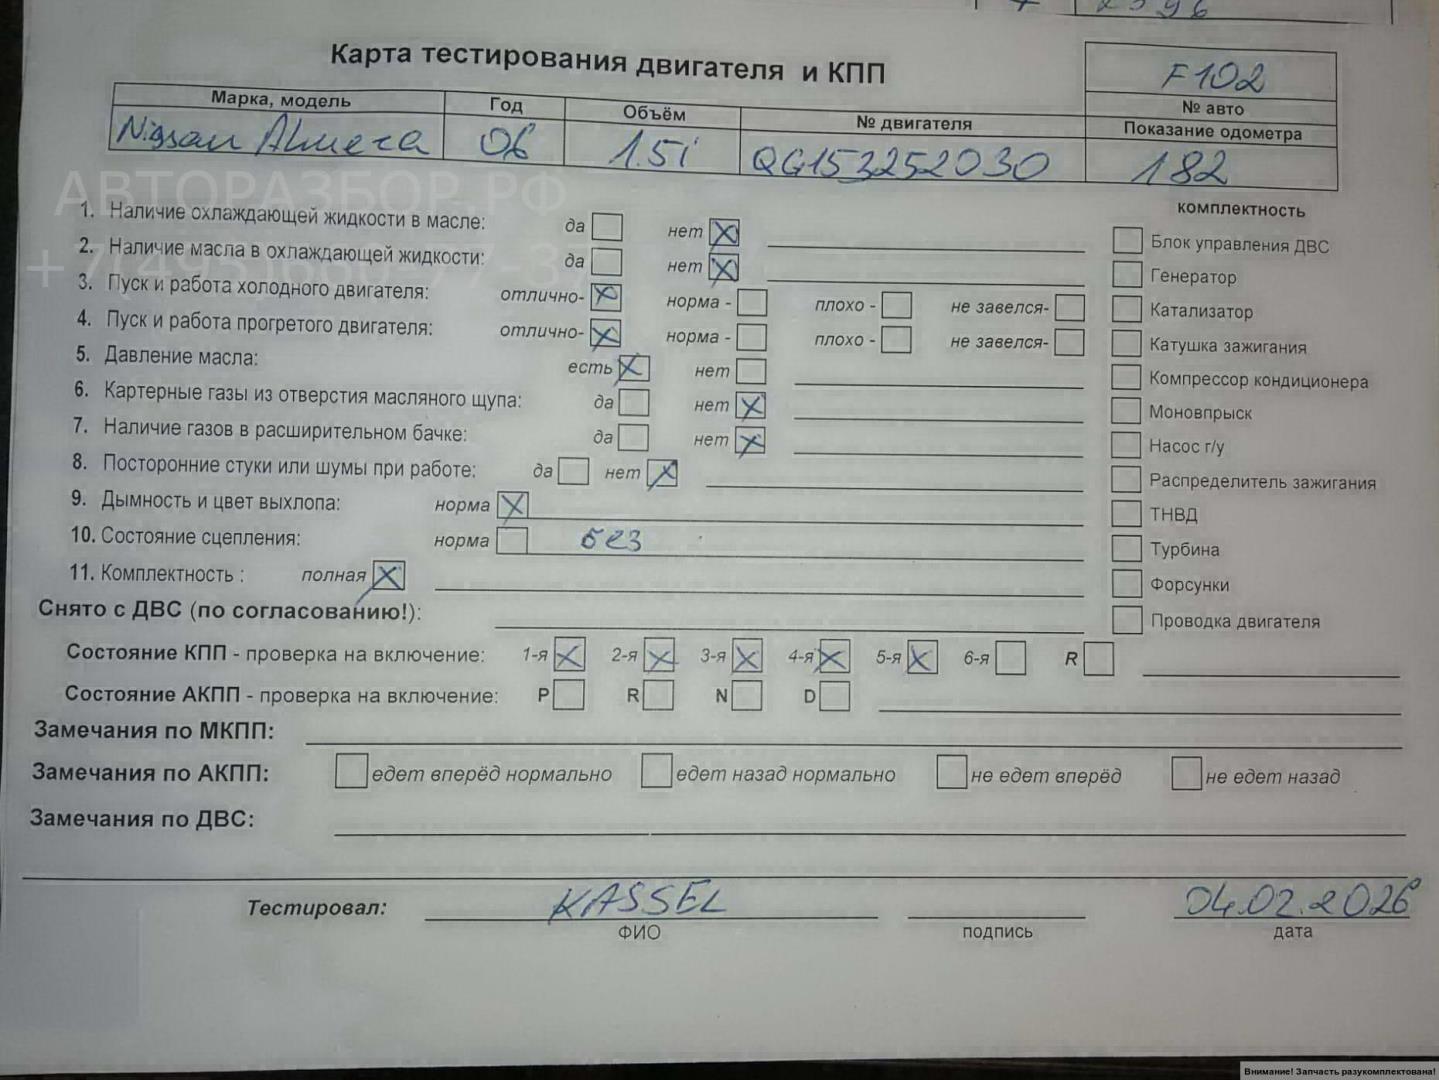 Карта тестирования двигателя и КПП
F102
№ авто
Марка, модель Год Объём № двигателя Показание одометра
Nissan Almera 06 1.5i QG153252030 182
АВТОРАЗБОР.РФ
комплектность
1. Наличие охлаждающей жидкости в масле: да нет
2. Наличие масла в охлаждающей жидкости: да нет
3. Пуск и работа холодного двигателя: отлично- норма - плохо - не завелся-
4. Пуск и работа прогретого двигателя: отлично- норма - плохо - не завелся-
5. Давление масла: есть нет
6. Картерные газы из отверстия масляного щупа: да нет
7. Наличие газов в расширительном бачке: да нет
8. Посторонние стуки или шумы при работе: да нет
9. Дымность и цвет выхлопа: норма
10. Состояние сцепления: норма без
11. Комплектность : полная
Блок управления ДВС
Генератор
Катализатор
Катушка зажигания
Компрессор кондиционера
Моновпрыск
Насос г/у
Распределитель зажигания
ТНВД
Турбина
Форсунки
Проводка двигателя
Снято с ДВС (по согласованию!):
Состояние КПП - проверка на включение: 1-я 2-я 3-я 4-я 5-я 6-я R
Состояние АКПП - проверка на включение: P R N D
Замечания по МКПП:
Замечания по АКПП: едет вперёд нормально едет назад нормально не едет вперёд не едет назад
Замечания по ДВС:
Тестировал: KASSEL 04.02.2026
ФИО подпись дата
Внимание! Запчасть разукомплектована!